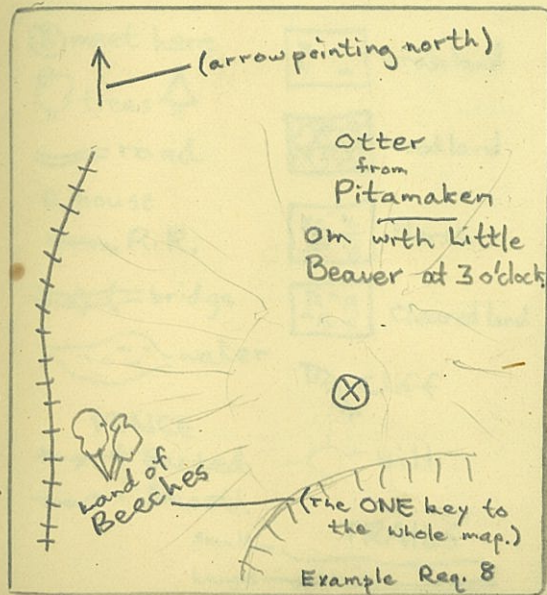 (arrow pointing north)
Otter
from
Pitamaken
Om with Little
Beaver at 3 o'clock
X
Land of
Beeches
(The ONE key to
the whole map.)
Example Req. 8